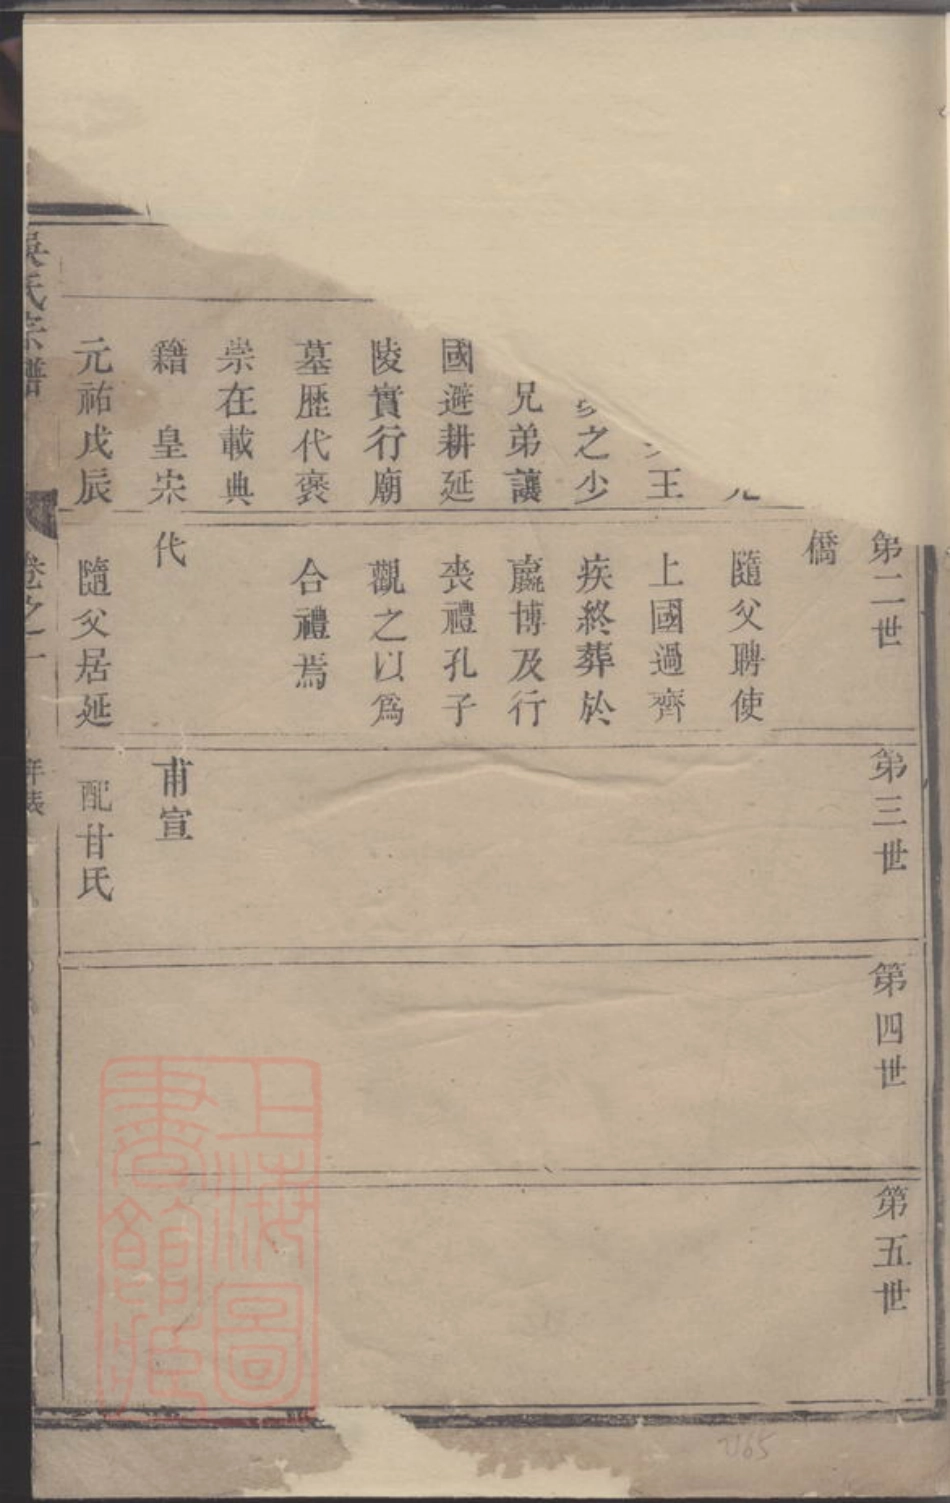 第二世
第三世
第四世
第五世
僑
王
之少
兄弟讓
國避耕延
陵實行廟
墓歷代褒
崇在載典
隨父聘使
上國過齊
疾終葬於
嬴博及行
喪禮孔子
觀之以爲
合禮焉
籍 皇宋
元祐戊辰
代
隨父居延
甫宣
配甘氏
吳氏宗譜
卷之一
年表
上海圖
書館藏